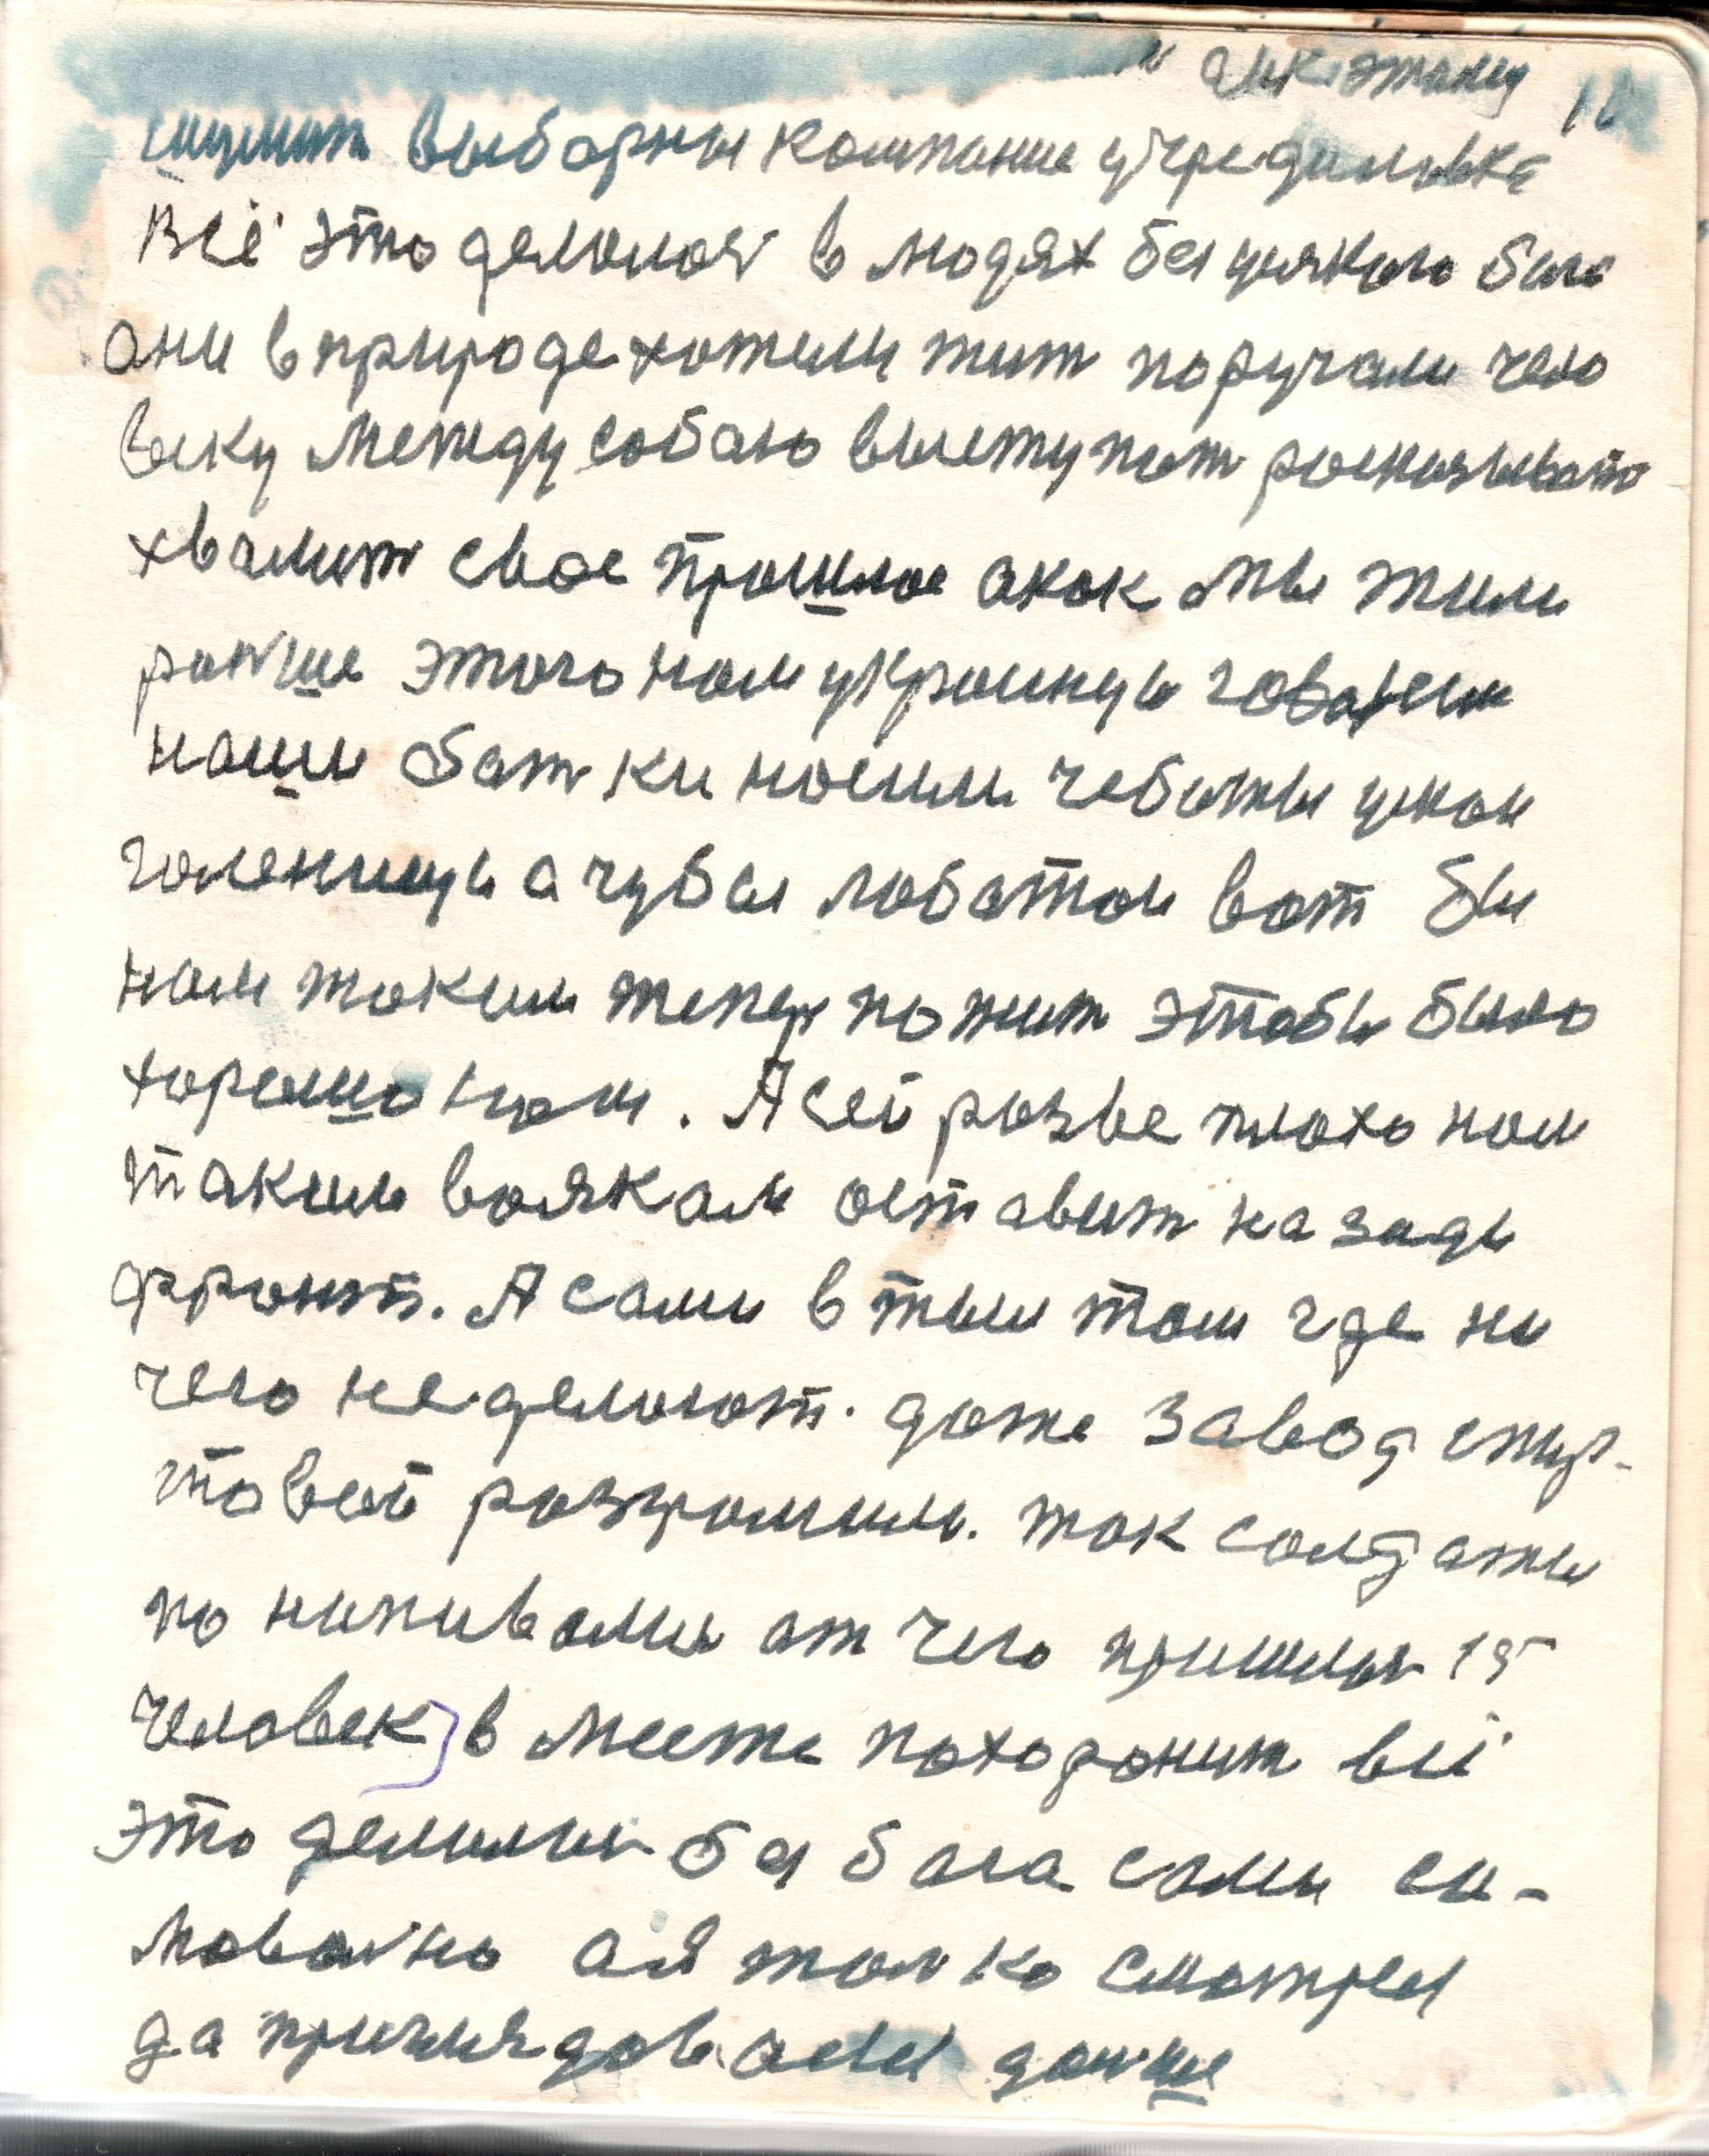 выборны компание
Всё это делолоя в людях без всякого бога
они в природе хотели жит поручали чело
веку между собаю выступат росказыват
хвалит свое прошлое акак мы жили
ранше этого нам украинцы
наши батки носили чеботы
голенищи а чубы лобатои вот бы
нам таким тепер пожит этобы было
хорошо нам. А сей розве плохо нам
таким воякам оставит назади
фронт. А сами в тыл там где ни
чего неделоют. даже завод спир-
товой розгромили. так солдаты
по напивалис от чего пришлос 15
человек в месте похоронит всё
это делилис без бога сами са-
мовално ая толко смотрел
да приглядовался данше